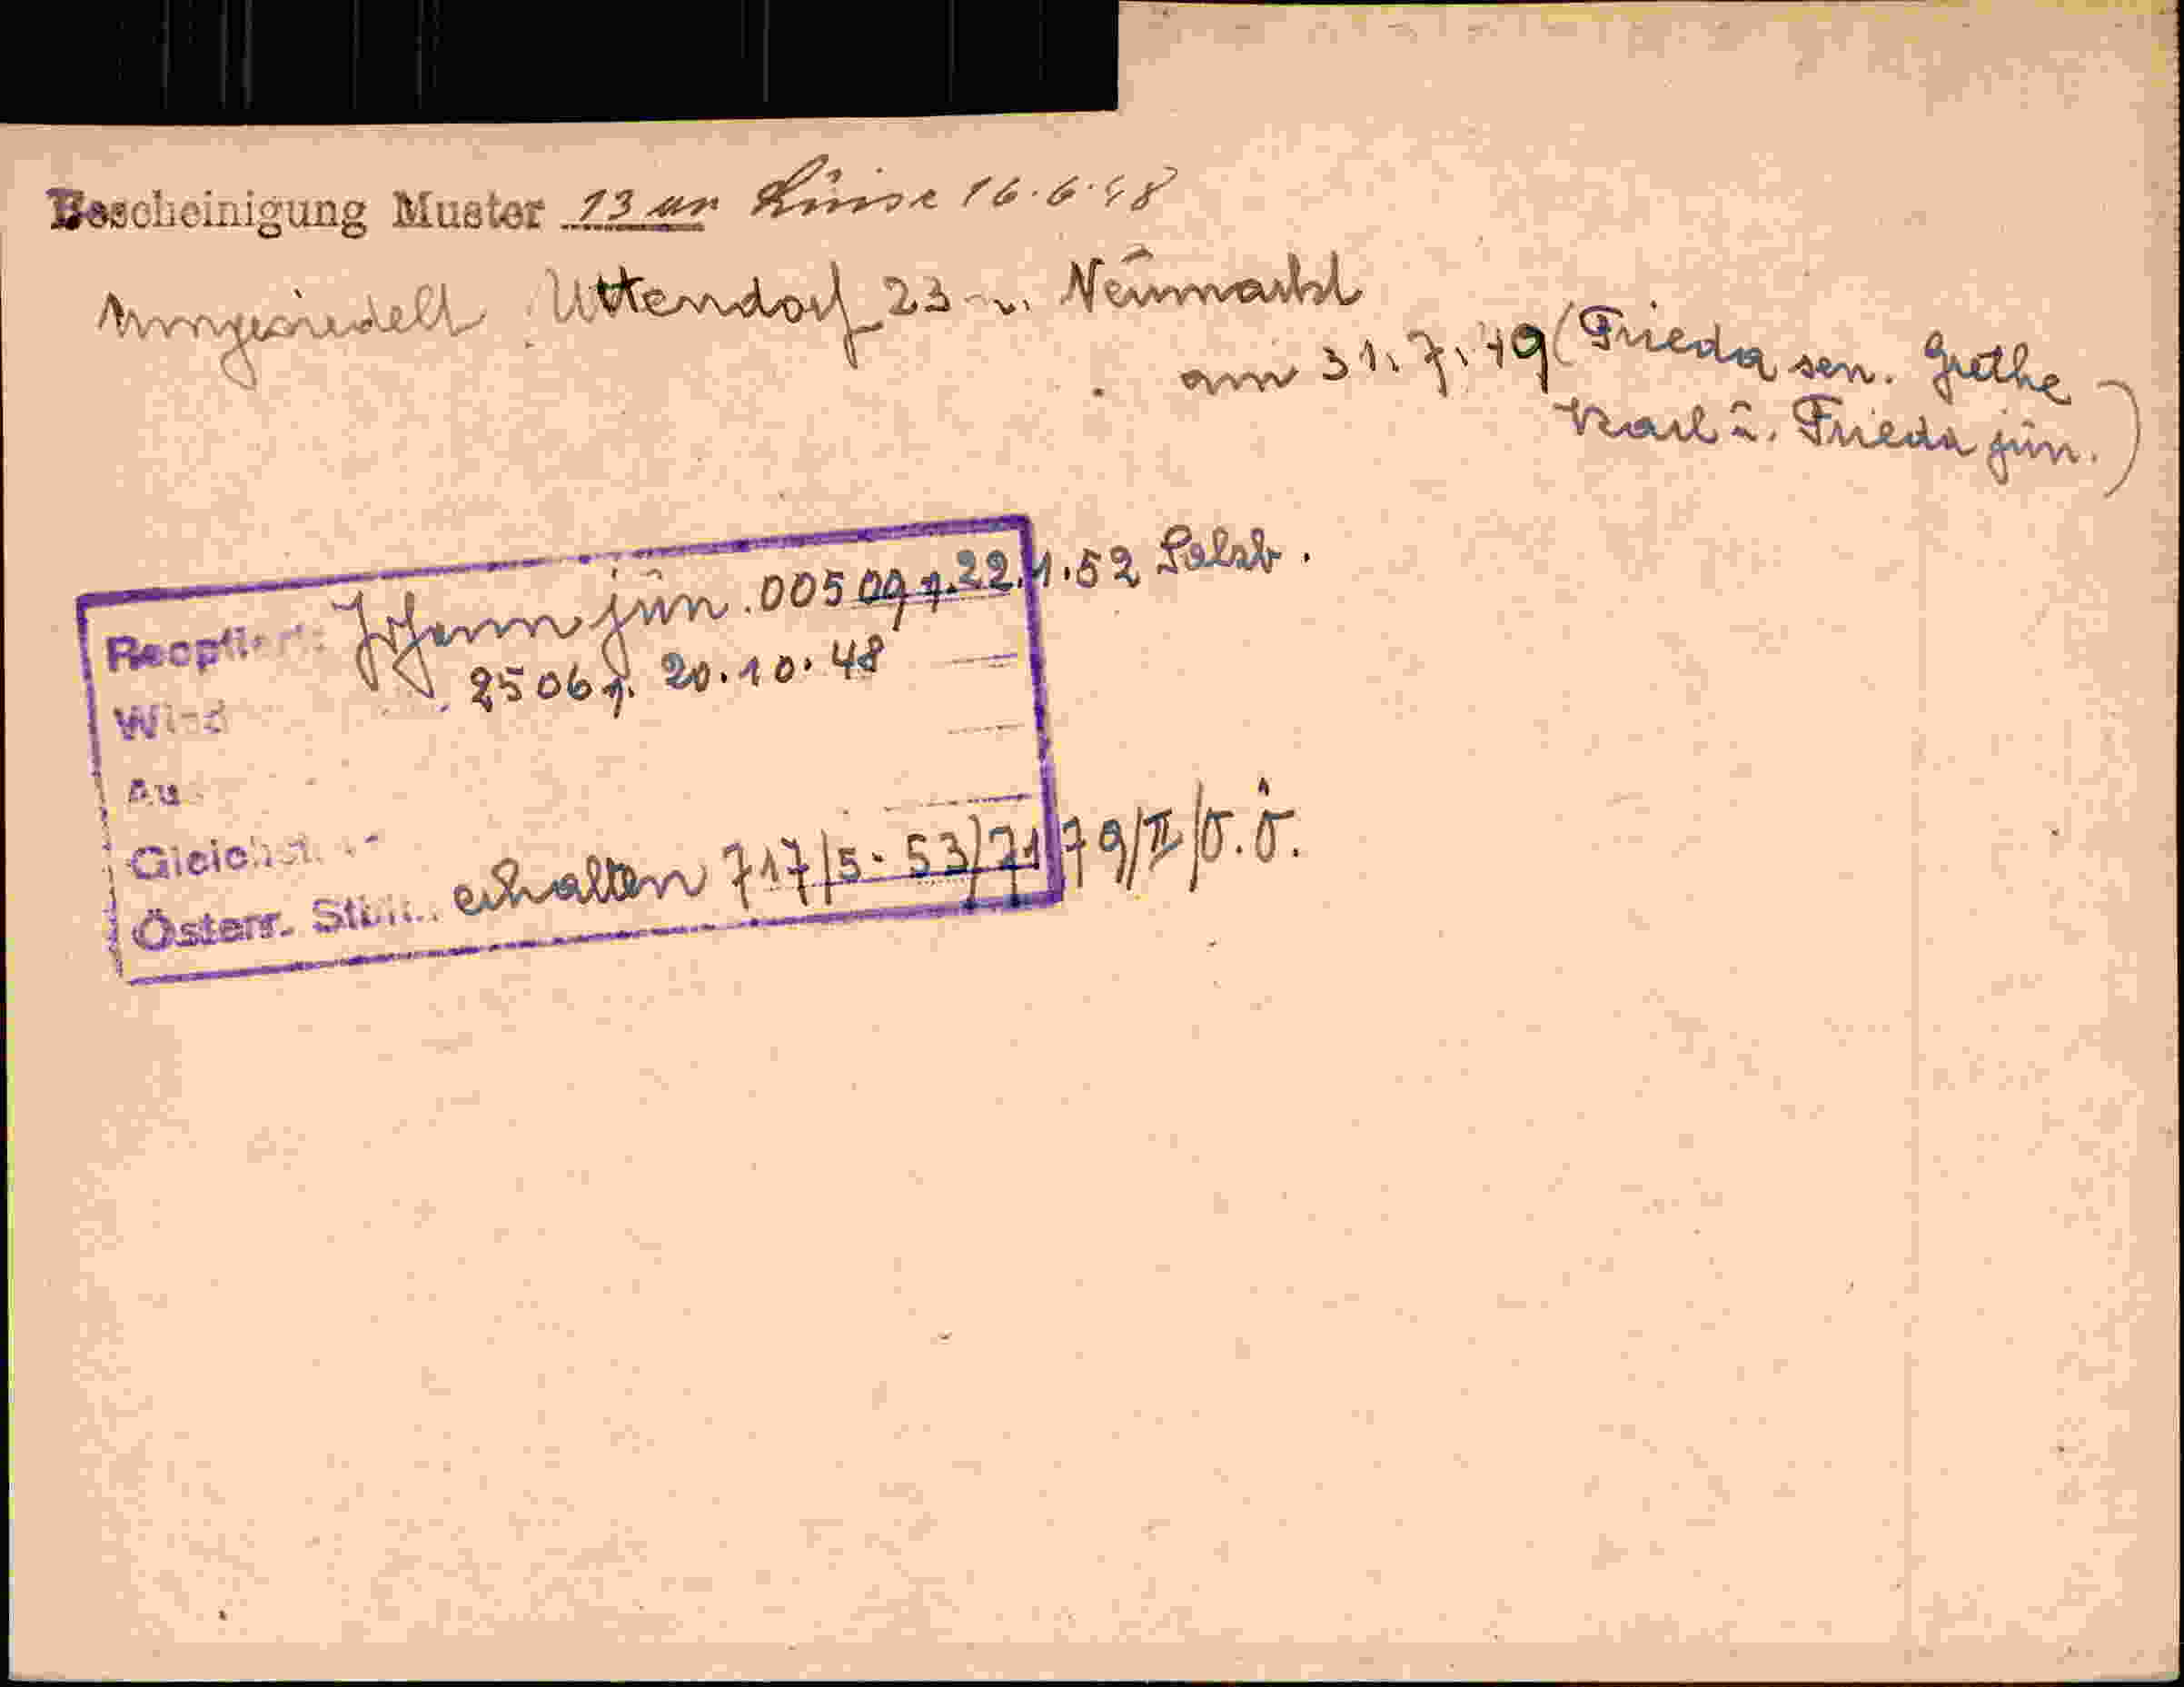 Bescheinigung Muster 13 an Luise 16.6.48
Umgesiedelt Uttendorf 23 Neumarkt
am 31.7.49 (Frieda sen. Grethe
Karl u. Frieda jun.)
Johann jun. 00509 v. 22.1.52 Salzb.
2506 v. 20.10.48
Wied
Au
Österr. Stb. erhalten 717/5-53/7179/II/O.Ö.